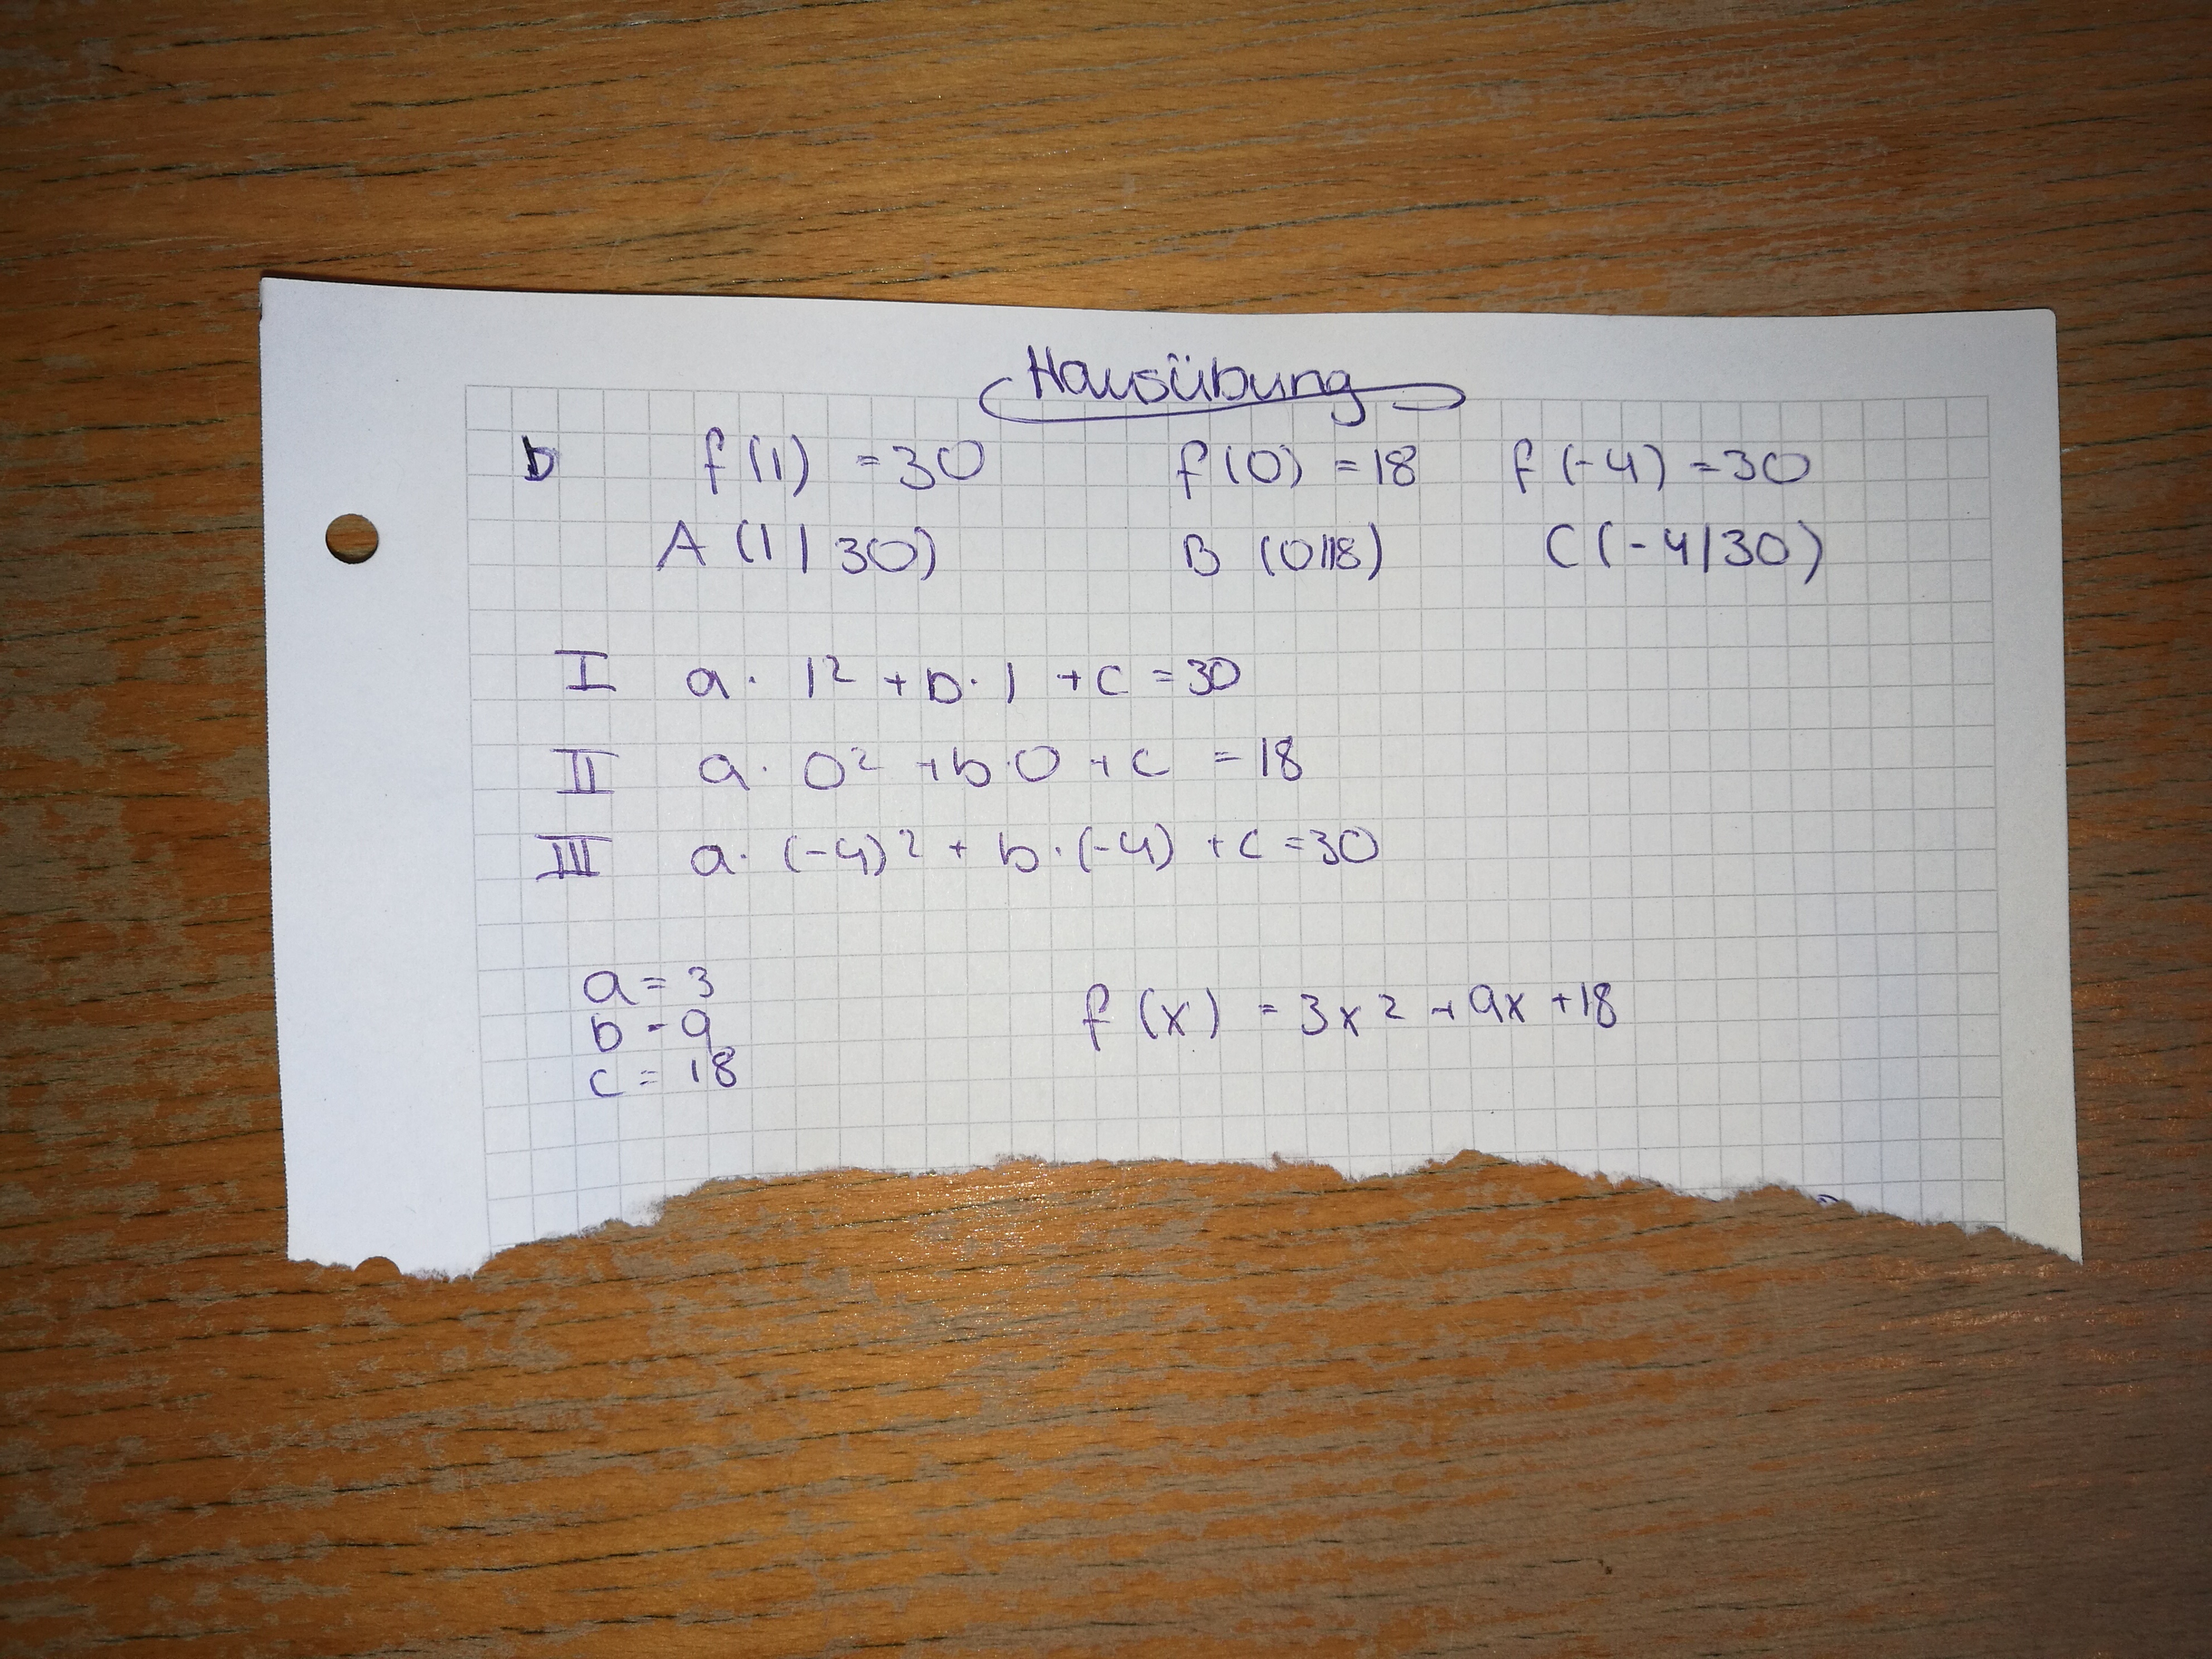 Hausübung
b f(1) = 30 f(0) = 18 f(-4) = 30
A (1/30) B (0/18) C (-4/30)
I a · 1² + b · 1 + c = 30
II a · 0² + b · 0 + c = 18
III a · (-4)² + b · (-4) + c = 30
a = 3
b = 9 f(x) = 3x² + 9x + 18
c = 18